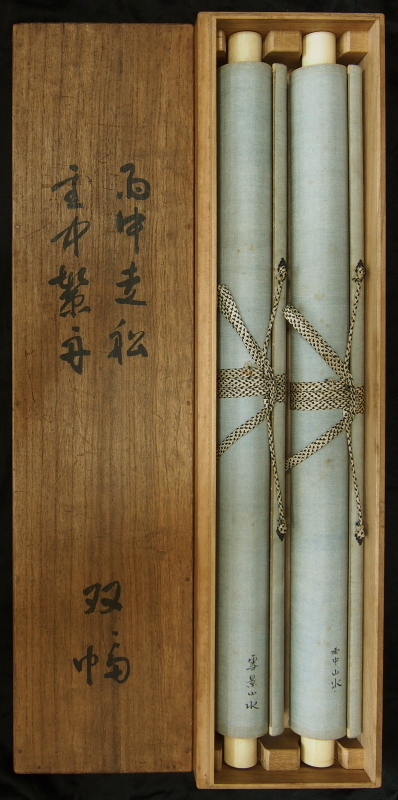 雨中走舩
雪中繋舟
双幅
雨中山水
雪景山水